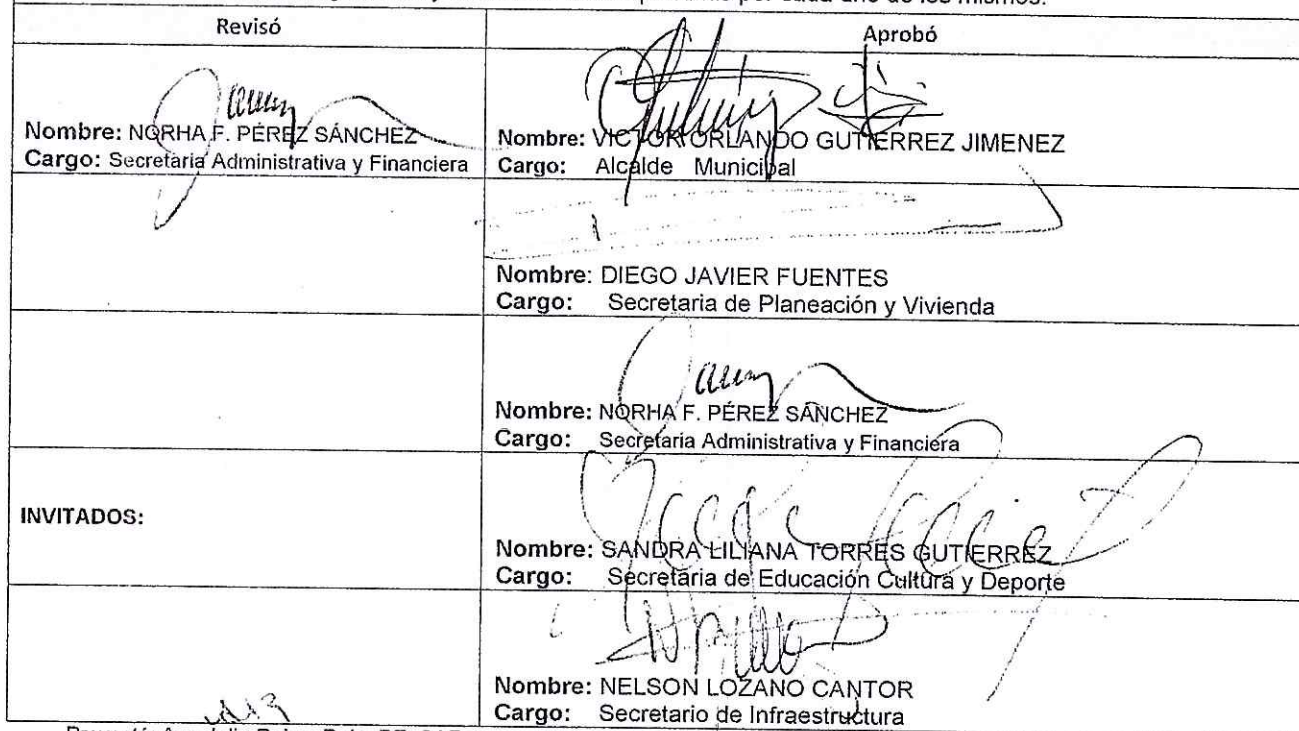 por cada uno de los mismos.
Revisó
Aprobó
Nombre: NORHA F. PÉREZ SÁNCHEZ
Cargo: Secretaria Administrativa y Financiera
Nombre: VICTOR ORLANDO GUTIERREZ JIMENEZ
Cargo: Alcalde Municipal
Nombre: DIEGO JAVIER FUENTES
Cargo: Secretaria de Planeación y Vivienda
Nombre: NORHA F. PÉREZ SÁNCHEZ
Cargo: Secretaria Administrativa y Financiera
INVITADOS:
Nombre: SANDRA LILIANA TORRES GUTIERREZ
Cargo: Secretaria de Educación Cultura y Deporte
Nombre: NELSON LOZANO CANTOR
Cargo: Secretario de Infraestructura